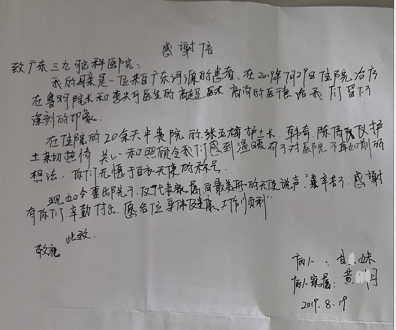 感謝信
致广东三九脑科医院:
我的母亲是一位来自广东河源的患者,在2019年7月29日住院治疗
在贵科院长和 医生的高超医术 高尚的医德给我们留下
深刻的印象。
在住院的20余天中贵院的张亚梅护士长 韩 陈 及护
士 热情 关心和照顾令我们感到温暖 了对医院不 的
想法,你们无愧于白衣天使的称号。
现如今要出院了,仅代表家属向最美丽的天使说声“辛苦了,感谢
有你们,辛勤付出,愿各位身体健康,工作顺利”
此致
敬礼
病人:甘 妹
病人家属:黄 月
2019.8.19